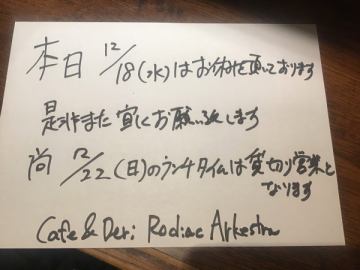 本日12/18(水)はお休みを頂いております
是非また宜しくお願い致します
尚12/22(日)のランチタイムは貸切り営業と
なります
Cafe & Deri Rodiac Arkestra